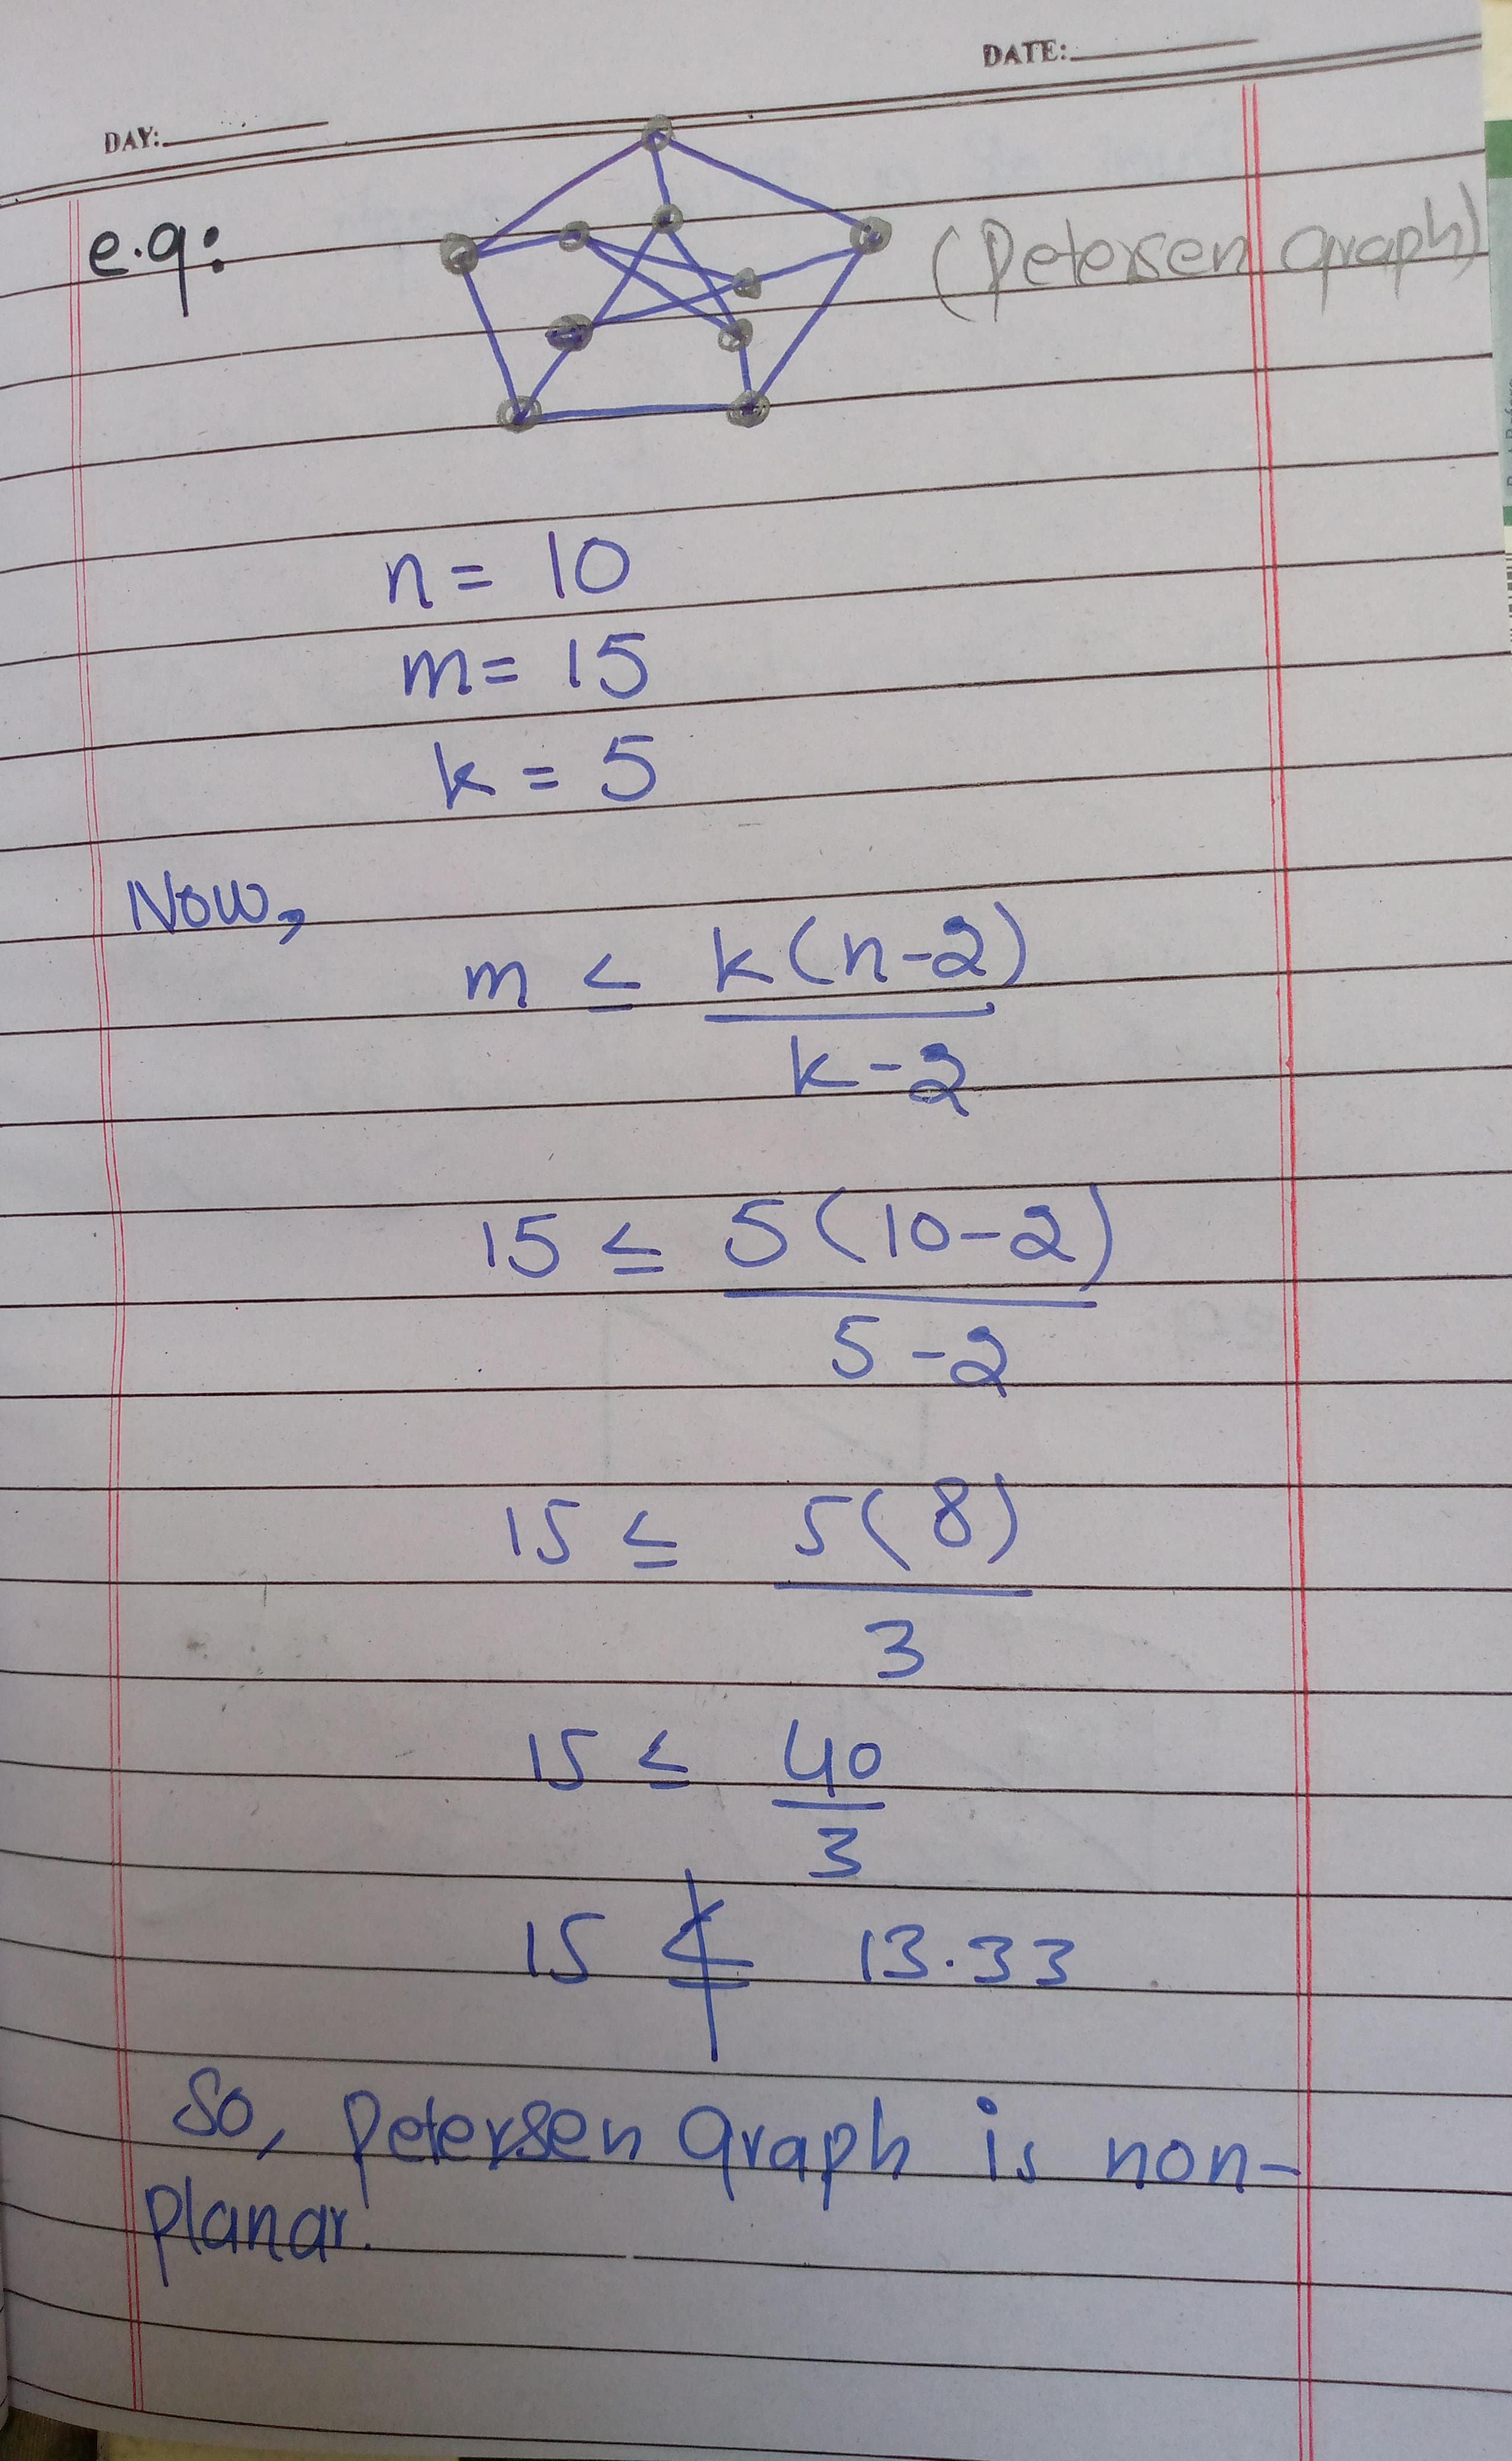 DATE:
DAY:
e.g:
(Petersen graph)
n = 10
m = 15
k = 5
Now,
m ≤ k(n-2)
k-2
15 ≤ 5(10-2)
5-2
15 ≤ 5(8)
3
15 ≤ 40
3
15 ≰ 13.33
So, Petersen graph is non-
planar.